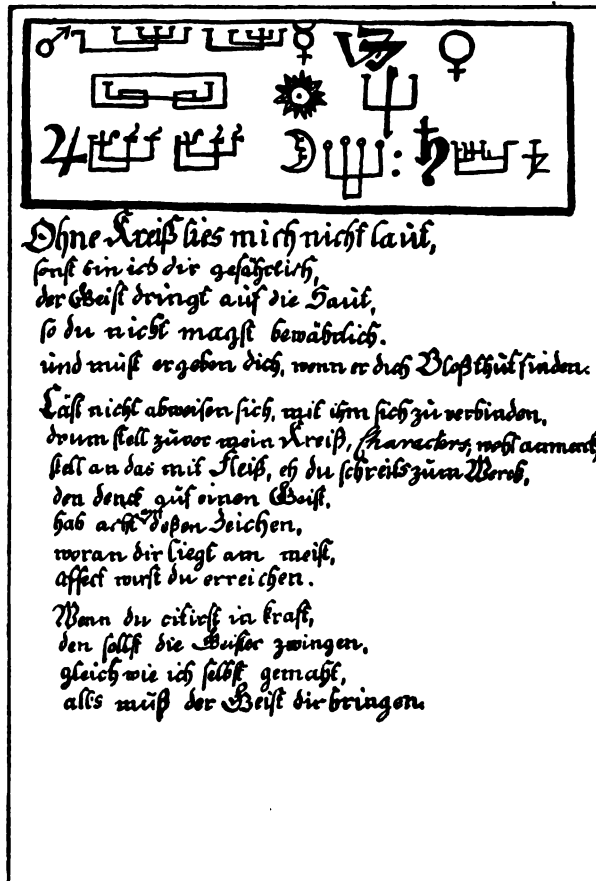 Ohne Kreiß lies mich nicht laut,
sonst bin ich dir gefährlich,
der Geist dringt auf die Haut,
so du nicht magst bewährlich.
und must ergeben dich, wenn er dich Bloß thut finden.
Läst nicht abweisen sich, mit ihm sich zu verbinden,
drum stell zuvor mein Kreiß, Characters, wohl
stell an das mit Fleiß, eh du schreits zum Werck,
den denck auf einen Geist,
hab acht deßen Zeichen,
woran dir liegt am meist,
affect wirst du erreichen.
Wenn du citirst in kraft,
den sollst die Geister zwingen,
gleich wie ich selbst gemaht,
alls muß der Geist dir bringen.